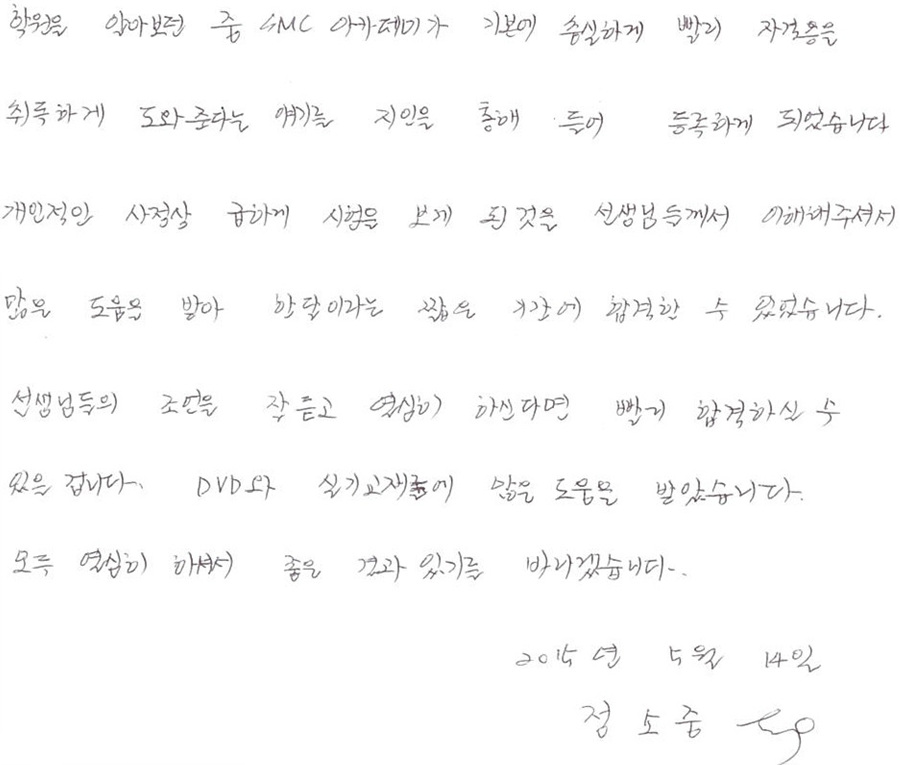 학원을 알아보던 중 SMC 아카데미가 기본에 충실하게 빨리 자격증을
취득하게 도와준다는 얘기를 지인을 통해 들어 등록하게 되었습니다
개인적인 사정상 급하게 시험을 보게 된 것을 선생님들께서 이해해주셔서
많은 도움을 받아 한달이라는 짧은 기간에 합격할 수 있었습니다.
선생님들의 조언을 잘 듣고 열심히 하신다면 빨리 합격하실 수
있을 겁니다. DVD와 실기교재들에 많은 도움을 받았습니다.
모두 열심히 하셔서 좋은 결과 있기를 바라겠습니다.
2015년 5월 14일
정소중